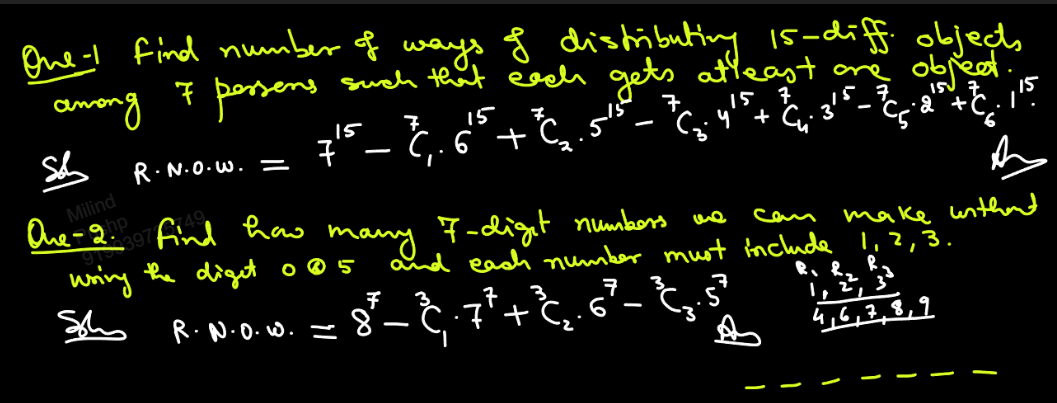 Que-1 find number of ways of distributing 15-diff. objects
among 7 persons such that each gets atleast one object.
Sol R.N.O.W. = 7^15 - ^7C_1. 6^15 + ^7C_2. 5^15 - ^7C_3. 4^15 + ^7C_4. 3^15 - ^7C_5. 2^15 + ^7C_6. 1^15.
Milind
Que-2. find how many 7-digit numbers we can make without
using the digit 0 @ 5 and each number must include 1, 2, 3.
R_1 R_2 R_3
1, 2, 3
4, 6, 7, 8, 9
Sol R.N.O.W. = 8^7 - ^3C_1. 7^7 + ^3C_2. 6^7 - ^3C_3. 5^7